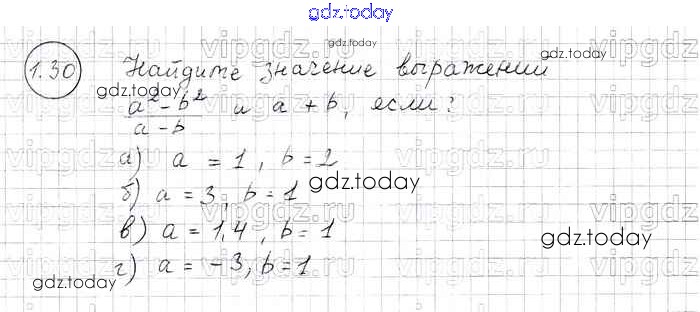 gdz.today
1.30 Найдите значение выражений
gdz.today
gdz.today
gdz.today
a² - b² / a - b и a + b, если?
а) a = 1, b = 2
gdz.today
б) a = 3, b = 1
в) a = 1,4, b = 1
gdz.today
г) a = -3, b = 1
gdz.today
vipgdz.ru